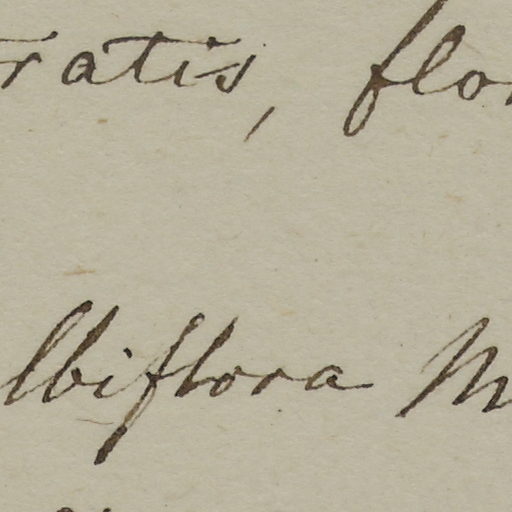 ratis, flo
lbiflora M